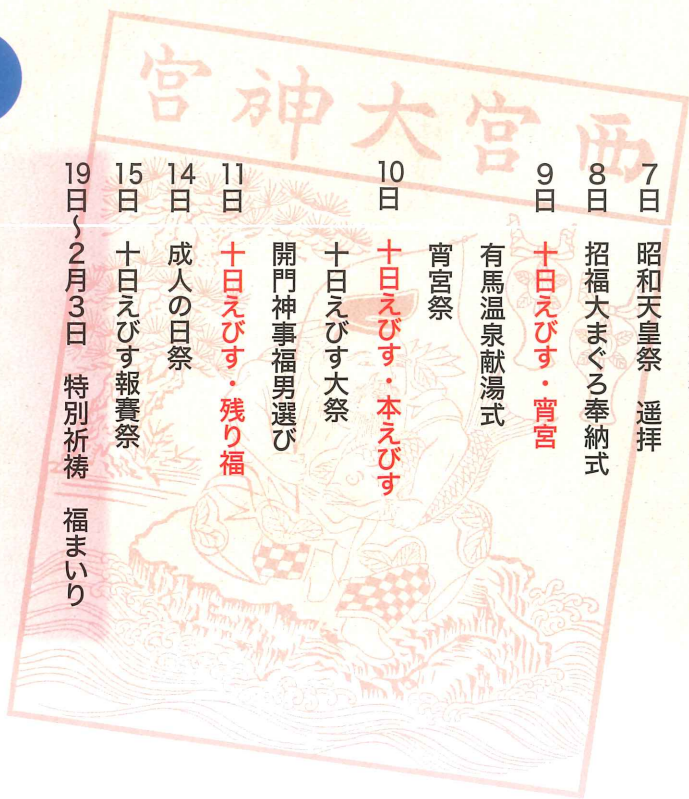 西宮大神宮
7日 昭和天皇祭 遥拝
8日 招福大まぐろ奉納式
9日 十日えびす・宵宮
有馬温泉献湯式
宵宮祭
10日 十日えびす・本えびす
十日えびす大祭
開門神事福男選び
11日 十日えびす・残り福
14日 成人の日祭
15日 十日えびす報賽祭
19日～2月3日 特別祈祷 福まいり